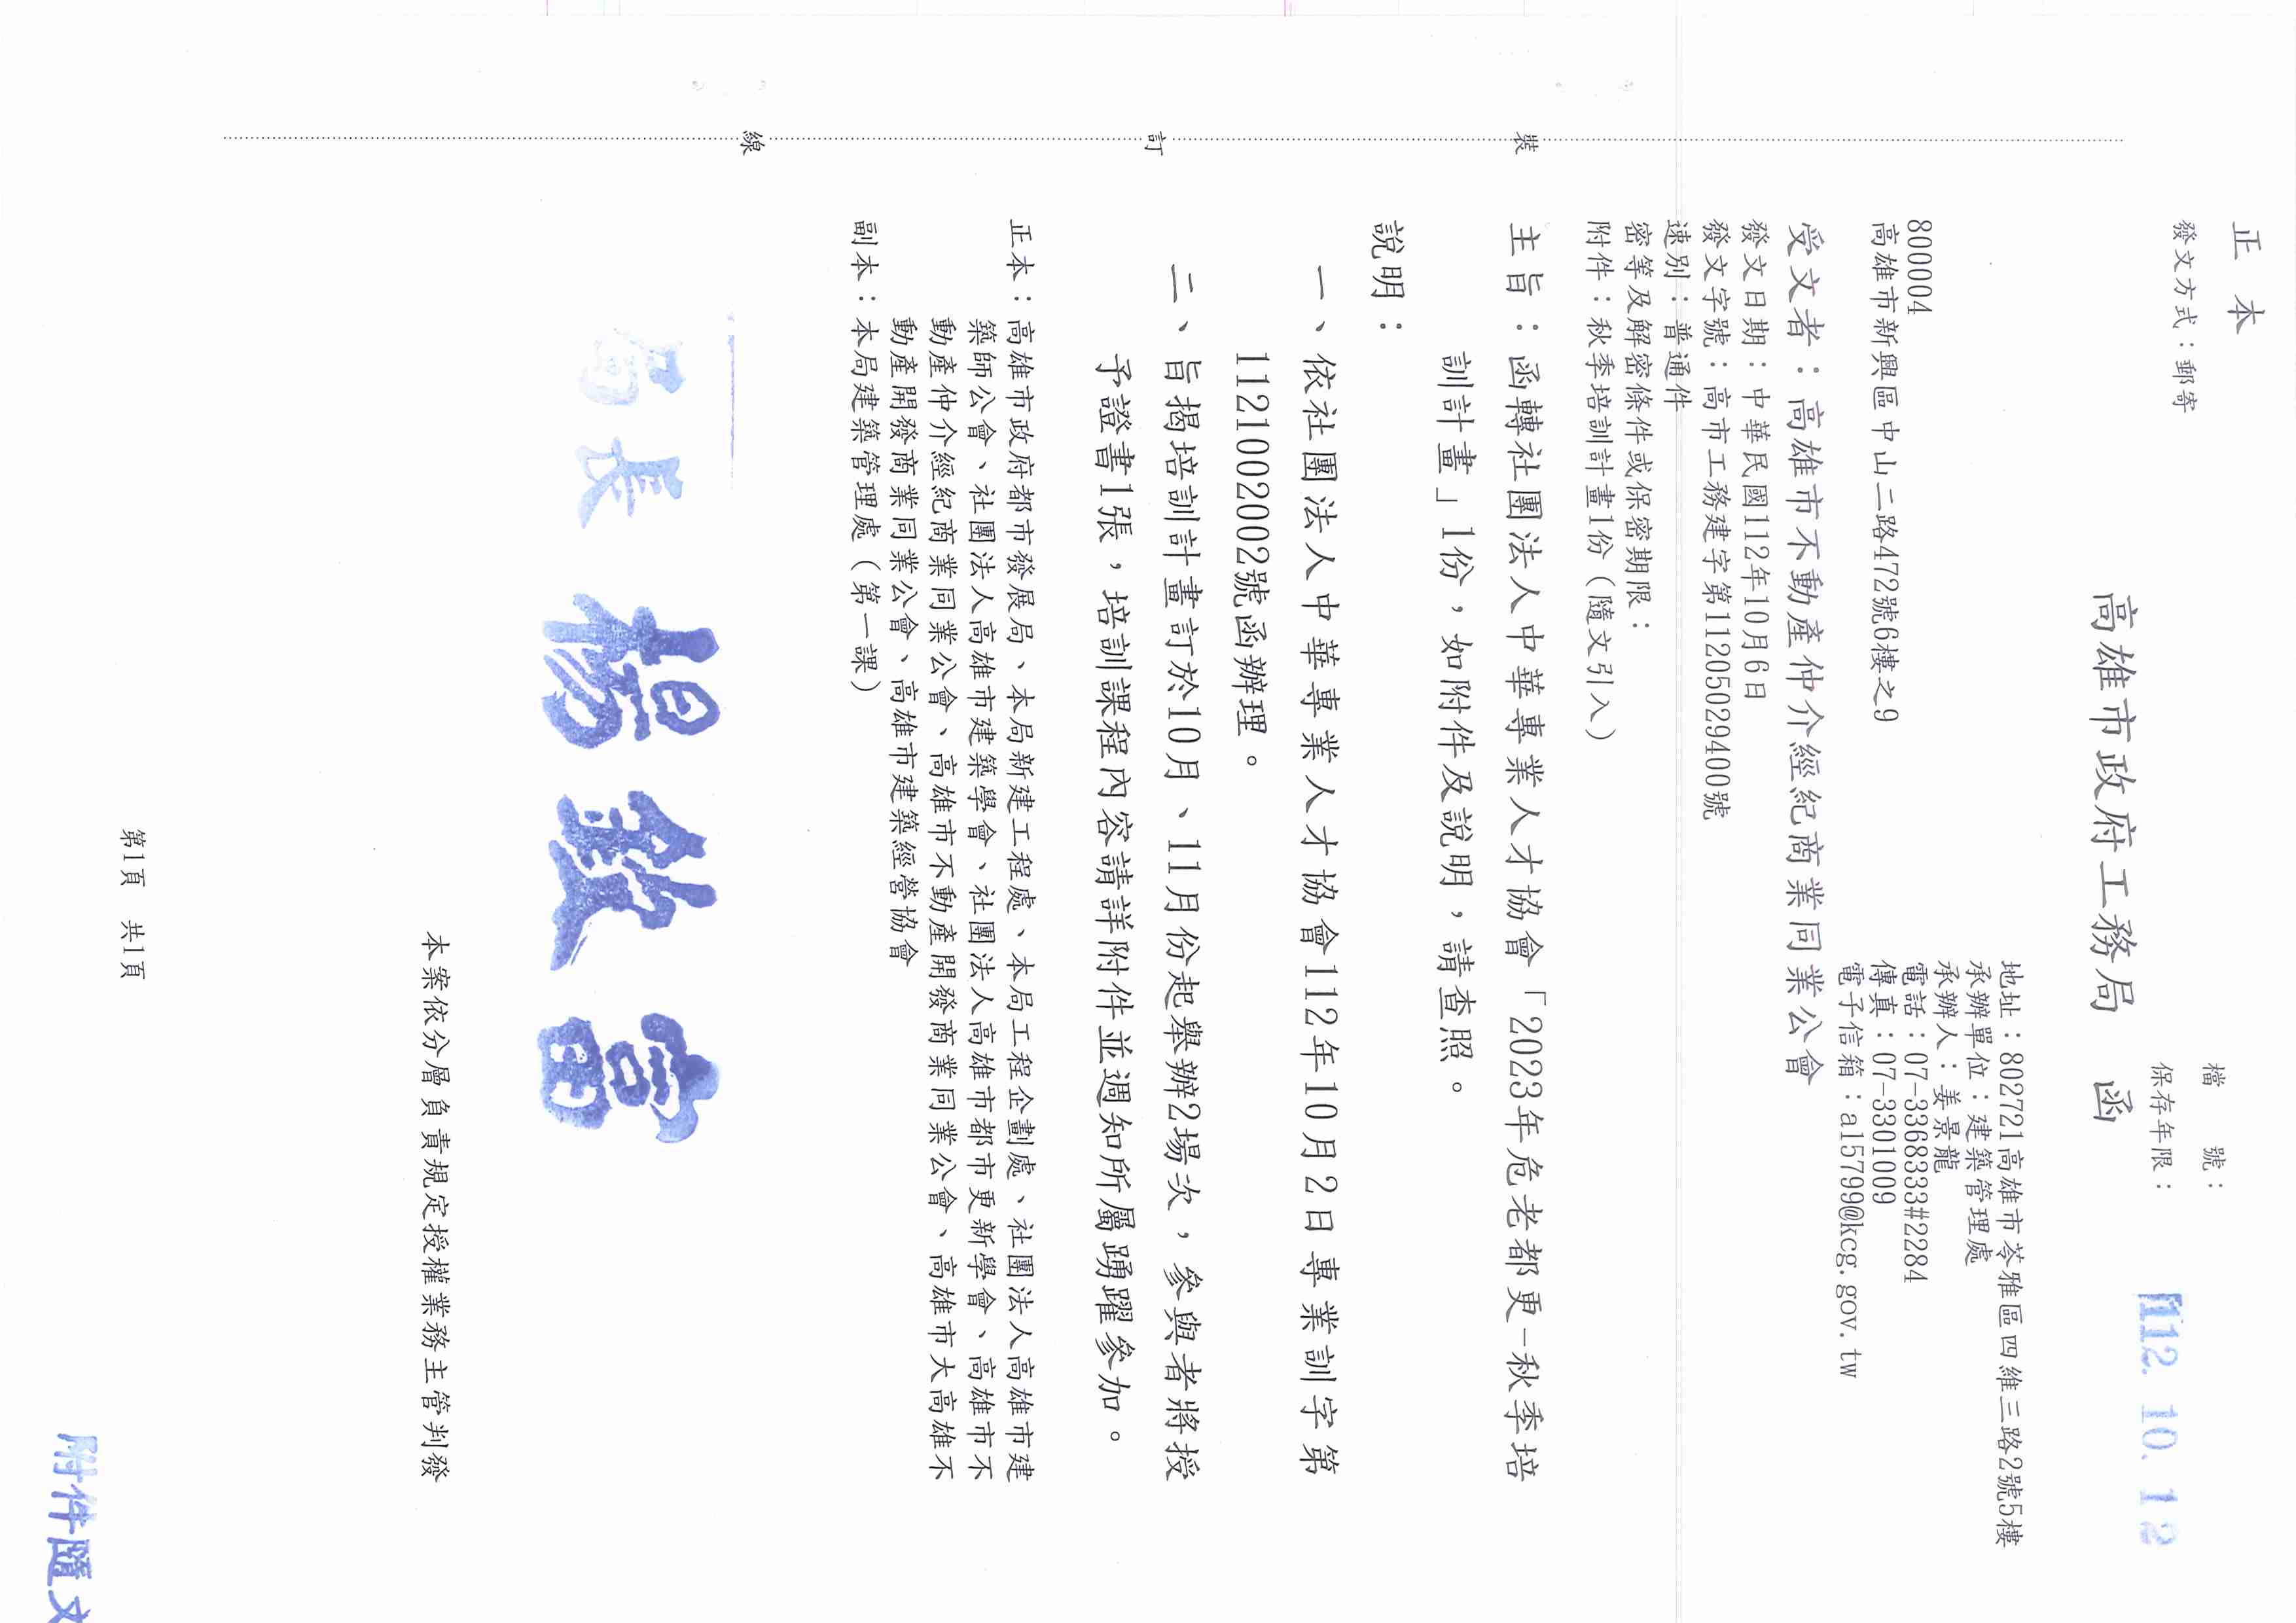 正本
發文方式：郵寄
檔　　號：
保存年限：
112. 10. 12
高雄市政府工務局　函
地址：802721高雄市苓雅區四維三路2號5樓
承辦單位：建築管理處
承辦人：姜景龍
電話：07-3368333#2284
傳真：07-3301009
電子信箱：a15799@kcg.gov.tw
800004
高雄市新興區中山二路472號6樓之9
受文者：高雄市不動產仲介經紀商業同業公會
發文日期：中華民國112年10月6日
發文字號：高市工務建字第11205029400號
速別：普通件
密等及解密條件或保密期限：
附件：秋季培訓計畫1份（隨文引入）
主旨：函轉社團法人中華專業人才協會「2023年危老都更-秋季培
訓計畫」1份，如附件及說明，請查照。
說明：
一、依社團法人中華專業人才協會112年10月2日專業訓字第
1121002002號函辦理。
二、旨揭培訓計畫訂於10月、11月份起舉辦2場次，參與者將授
予證書1張，培訓課程內容請詳附件並週知所屬踴躍參加。
正本：高雄市政府都市發展局、本局新建工程處、本局工程企劃處、社團法人高雄市建
築師公會、社團法人高雄市建築學會、社團法人高雄市都市更新學會、高雄市不
動產仲介經紀商業同業公會、高雄市不動產開發商業同業公會、高雄市大高雄不
動產開發商業同業公會、高雄市建築經營協會
副本：本局建築管理處（第一課）
局長 楊欽富
本案依分層負責規定授權業務主管判發
第1頁　共1頁
附件隨文
裝
訂
線